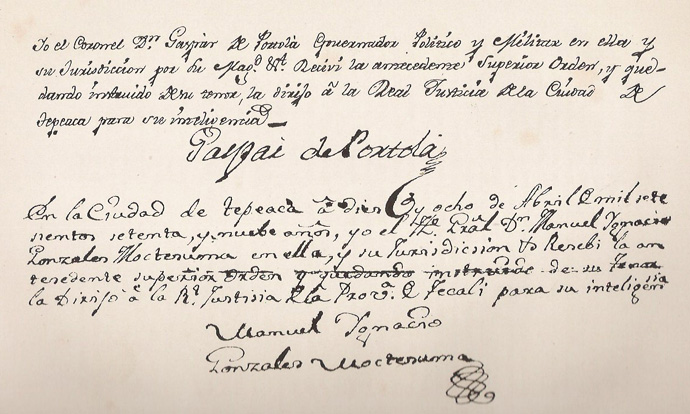 Yo el Coronel Dn. Gaspar de Portolá Governador Político y Militar en ella y
su Jurisdiccion por Su Magd. &t. Reciví la antecedente Superior Orden, y que-
dando instruido de su tenor, la dirijo â la Real Justicia de la Ciudad de
Tepeaca para su inteligencia
Gaspar de Portolá
En la Ciudad de tepeaca â dies y ocho de Abril de mil sete
sientos setenta, y nuebe años, yo el Dn. Manuel Ygnacio
Gonzales Moctesuma en ella, y su Jurisdicsion Resebi la an
tesedente superior Orden y quedando instruido de su Tenor
la Dirijo â la Rl. Justisia de la Prova. de Tecali para su inteligensia
Manuel Ygnacio
Gonzales Moctesuma